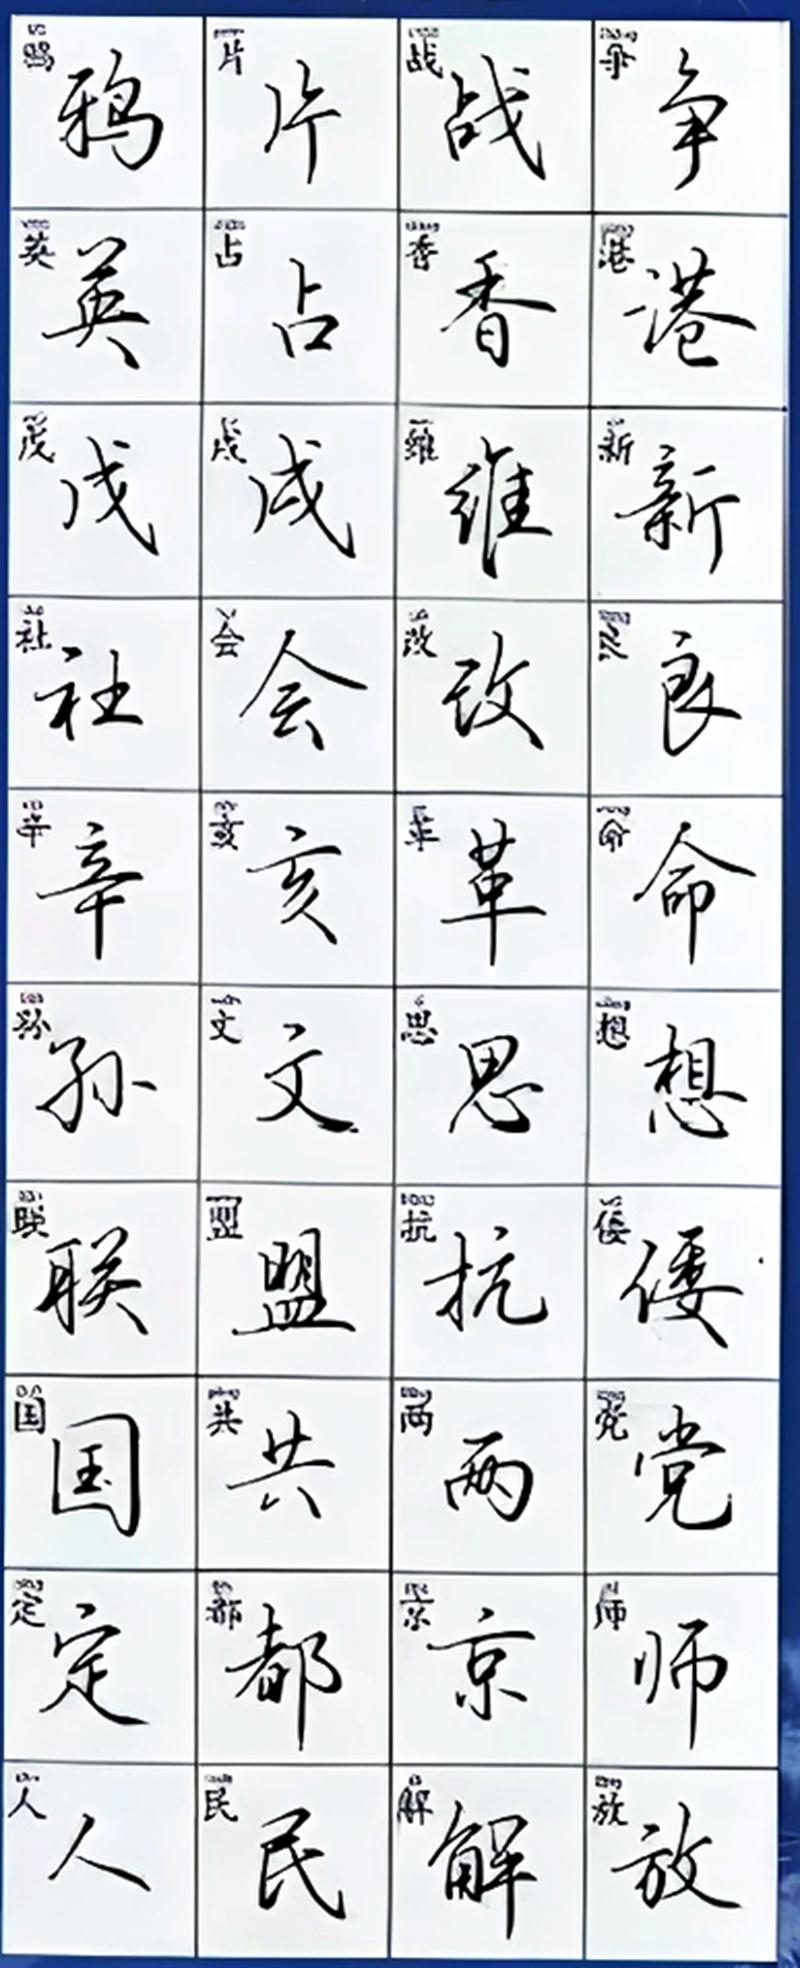 鸦片战争
英占香港
戊戌维新
社会改良
辛亥革命
孙文思想
联盟抗倭
国共两党
定都京师
人民解放